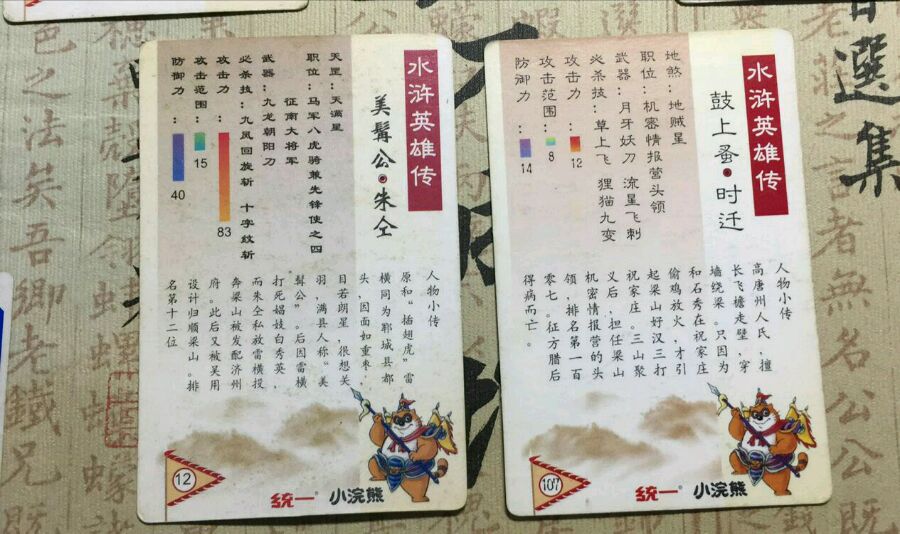 水浒英雄传
美髯公·朱仝
天罡：天满星
职位：马军八虎骑兼先锋使之四
征南大将军
武器：九龙朝阳刀
必杀技：九凤回旋斩 十字纹斩
攻击力：83
攻击范围：15
防御力：40
人物小传
原和“插翅虎”雷
横同为郓城县都
头，因面如重枣，
目若朗星，很想关
羽，满县人称“美
髯公”。后因雷横
打死娼妓白秀英，
而朱仝私放雷横投
奔梁山被发配济州
府。此后又被吴用
设计归顺梁山。排
名第十二位
12
统一 小浣熊
水浒英雄传
鼓上蚤·时迁
地煞：地贼星
职位：机密情报营头领
武器：月牙妖刀 流星飞刺
必杀技：草上飞 狸猫九变
攻击力：12
攻击范围：8
防御力：14
人物小传
高唐州人氏，擅
长飞檐走壁，穿
墙绕梁。只因为
和石秀在祝家庄
偷鸡放火，才引
起梁山好汉三打
祝家庄。三山聚
义后，担任梁山
机密情报营的头
领，排名第一百
零七。征方腊后
得病而亡。
107
统一 小浣熊
選集
邑之法矣吾卿老鐵兄